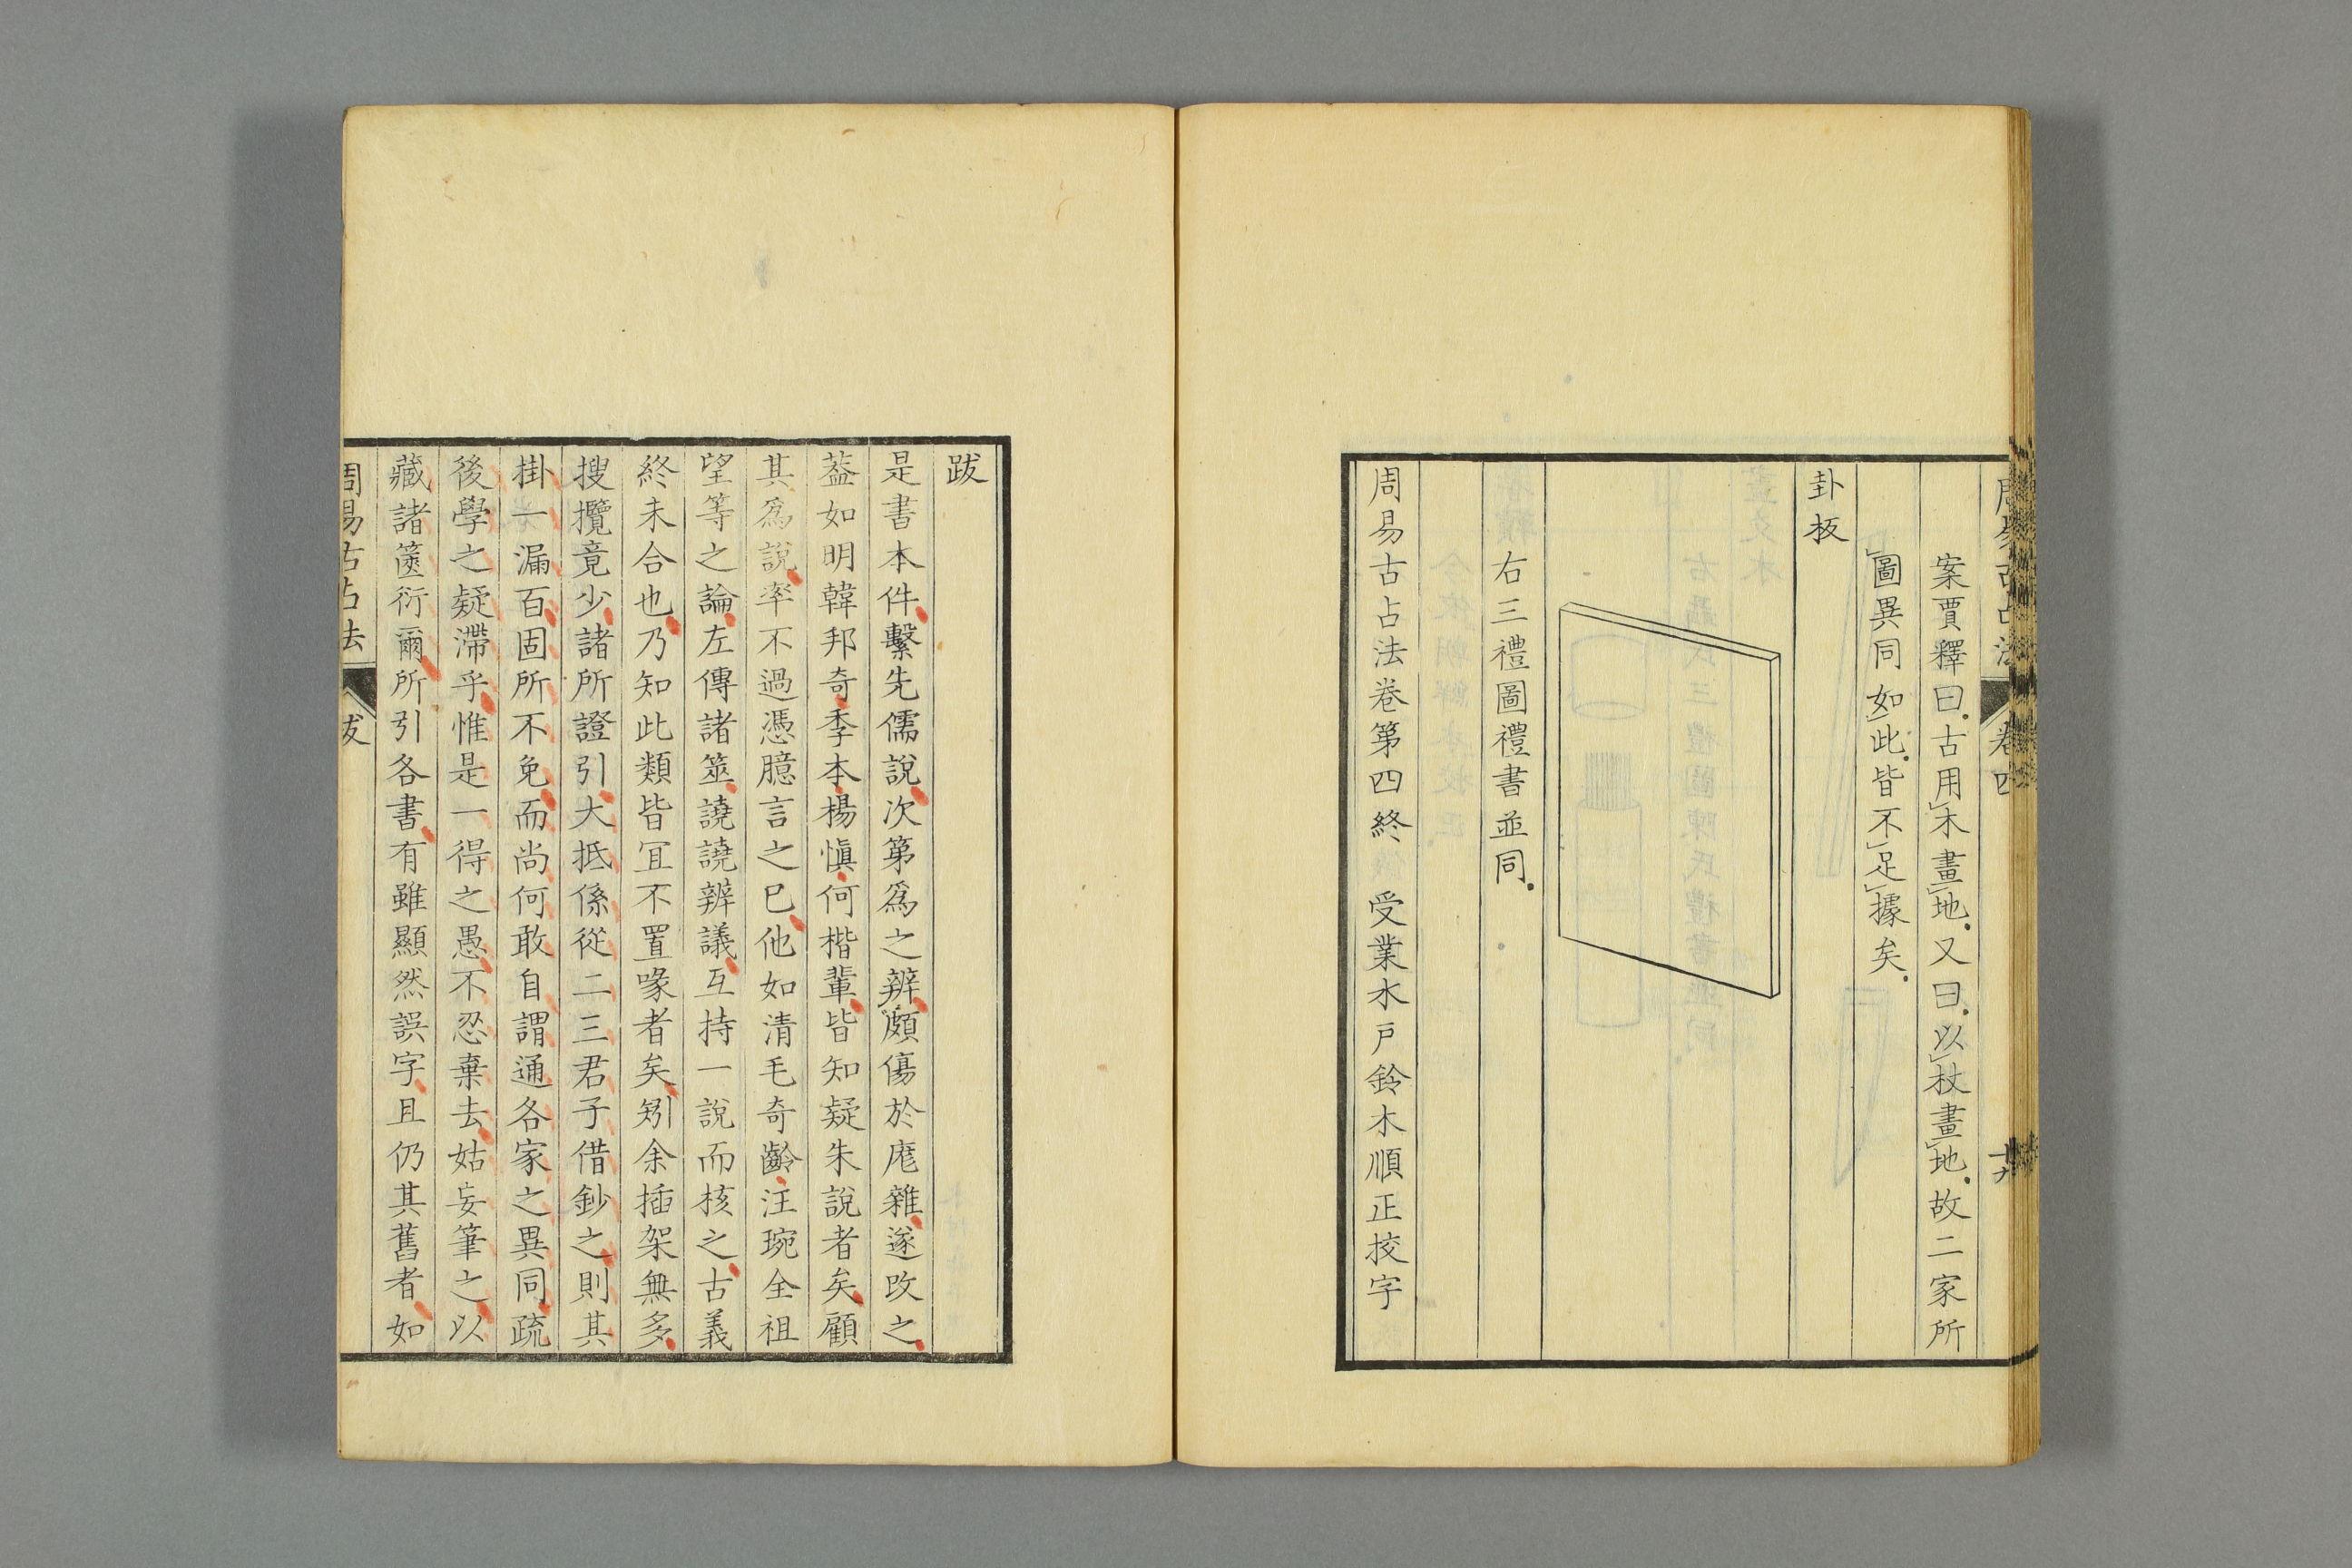 案賈釋曰古用木畫地又曰以杖畫地故二家所
圖異同如此皆不足據矣
卦板
右三禮圖禮書並同
周易古占法卷第四終 受業水戶鈴木順正挍字
跋
是書本件繫先儒說次第爲之辨頗傷於庬雜遂改之
葢如明韓邦奇季本楊愼何楷輩皆知疑朱說者矣顧
其爲說率不過憑臆言之已他如清毛奇齡汪琬全祖
望等之論左傳諸筮譊譊辨議互持一說而核之古義
終未合也乃知此類皆宜不置喙者矣矧余插架無多
搜攬竟少諸所證引大抵係從二三君子借鈔之則其
掛一漏百固所不免而尚何敢自謂通各家之異同疏
後學之疑滯乎惟是一得之愚不忍棄去姑妄筆之以
藏諸篋衍爾所引各書有雖顯然誤字且仍其舊者如
周易古占法 跋